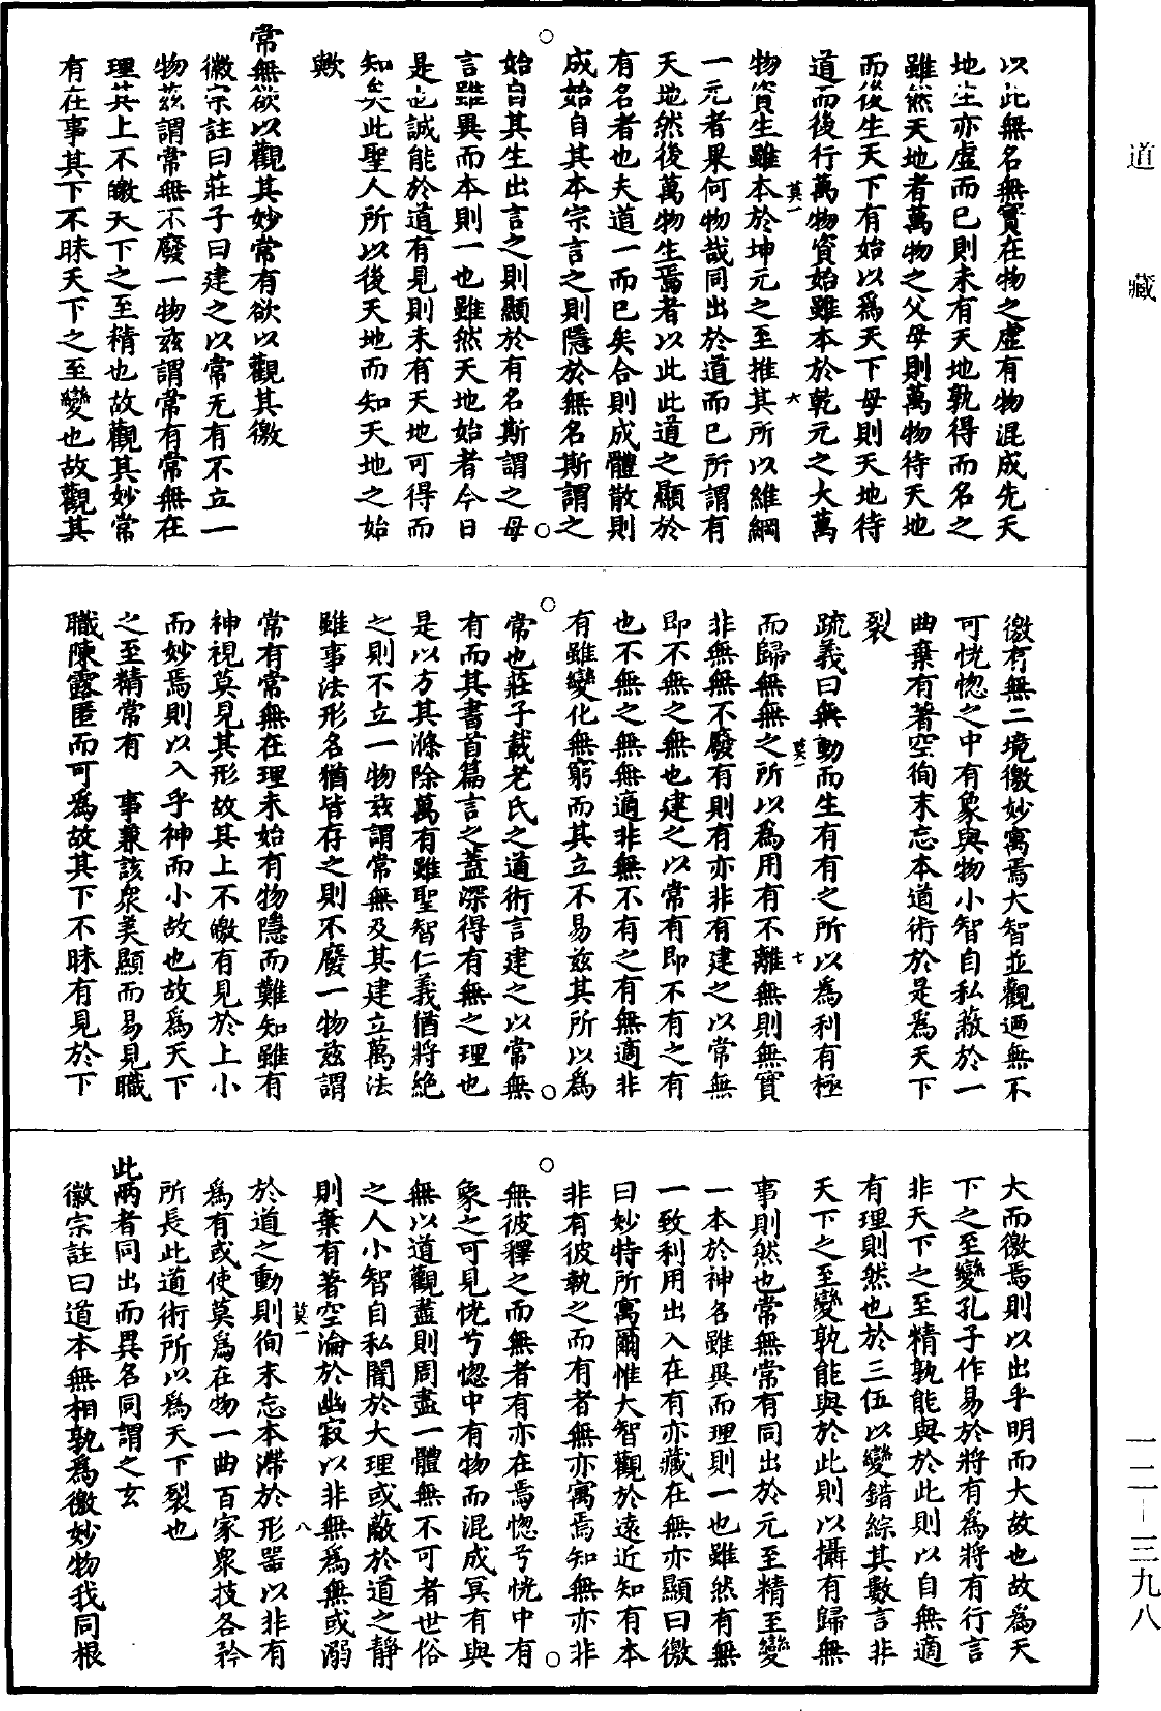 道藏
以此無名無實在物之虛有物混成先天
地生亦虛而已則未有天地孰得而名之
雖然天地者萬物之父母則萬物待天地
而後生天下有始以為天下母則天地待
道而後行萬物資始雖本於乾元之大萬
莫一 六
物資生雖本於坤元之至推其所以維綱
一元者果何物哉同出於道而已所謂有
天地然後萬物生焉者以此此道之顯於
有名者也夫道一而已矣合則成體散則
成始自其本宗言之則隱於無名斯謂之
始自其生出言之則顯於有名斯謂之母
言雖異而本則一也雖然天地始者今日
是也誠能於道有見則未有天地可得而
知矣此聖人所以後天地而知天地之始
歟
常無欲以觀其妙常有欲以觀其徼
徽宗註曰莊子曰建之以常无有不立一
物茲謂常無不廢一物茲謂常有常無在
理其上不皦天下之至精也故觀其妙常
有在事其下不昧天下之至變也故觀其
徼有無二境徼妙寓焉大智並觀迺無不
可恍惚之中有象與物小智自私蔽於一
曲棄有著空徇末忘本道術於是為天下
裂
疏義曰無動而生有有之所以為利有極
莫一 七
而歸無無之所以為用有不離無則無實
非無無不廢有則有亦非有建之以常無
即不無之無也建之以常有即不有之有
也不無之無無適非無不有之有無適非
有雖變化無窮而其立不易茲其所以為
常也莊子載老氏之道術言建之以常無
有而其書首篇言之蓋深得有無之理也
是以方其滌除萬有雖聖智仁義猶將絕
之則不立一物茲謂常無及其建立萬法
雖事法形名猶皆存之則不廢一物茲謂
常有常無在理未始有物隱而難知雖有
神視莫見其形故其上不皦有見於上小
而妙焉則以入乎神而小故也故為天下
之至精常有 事兼該眾美顯而易見職
職陳露匿而可為故其下不昧有見於下
大而徼焉則以出乎明而大故也故為天
下之至變孔子作易於將有為將有行言
非天下之至精孰能與於此則以自無適
有理則然也於三伍以變錯綜其數言非
天下之至變孰能與於此則以攝有歸無
事則然也常無常有同出於元至精至變
一本於神名雖異而理則一也雖然有無
一致利用出入在有亦藏在無亦顯曰徼
曰妙特所寓爾惟大智觀於遠近知有本
非有彼執之而有者無亦寓焉知無亦非
無彼釋之而無者有亦在焉惚兮恍中有
象之可見恍兮惚中有物而混成冥有與
無以道觀盡則周盡一體無不可者世俗
之人小智自私闇於大理或蔽於道之靜
則棄有著空淪於幽寂以非無為無或溺
莫一 八
於道之動則徇末忘本滯於形器以非有
為有或使莫為在物一曲百家眾技各矜
所長此道術所以為天下裂也
此兩者同出而異名同謂之玄
徽宗註曰道本無相孰為徼妙物我同根
一一－三九八